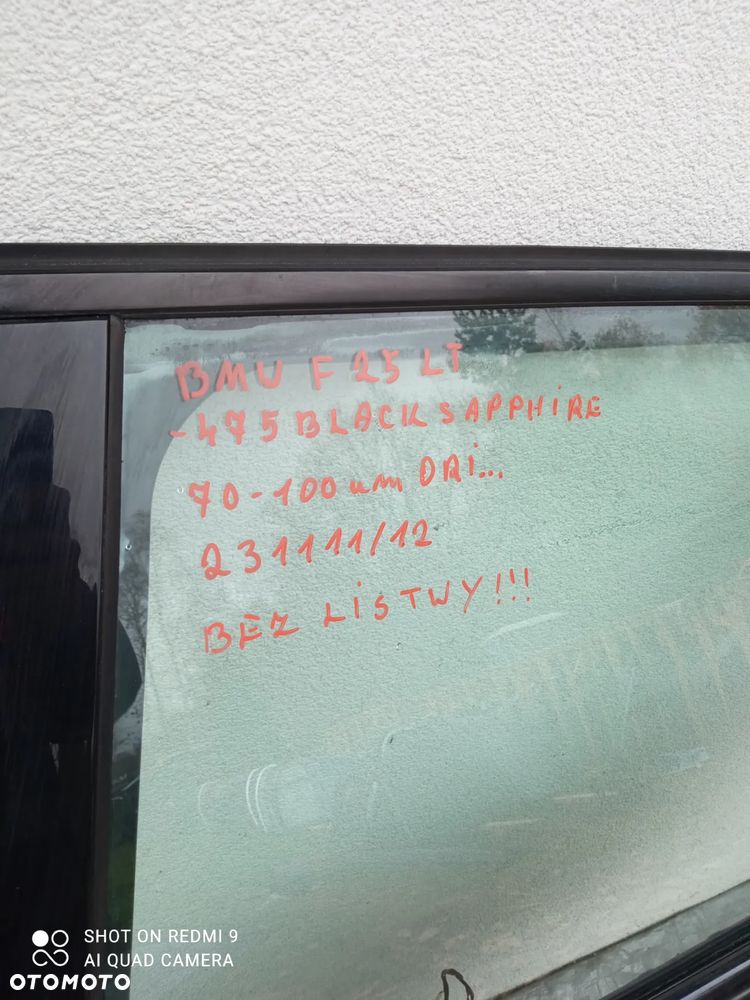 BMW F25 LT
-475 BLACK SAPPHIRE
70-100um ORI...
231111/12
BEZ LISTWY!!!
SHOT ON REDMI 9
AI QUAD CAMERA
OTOMOTO